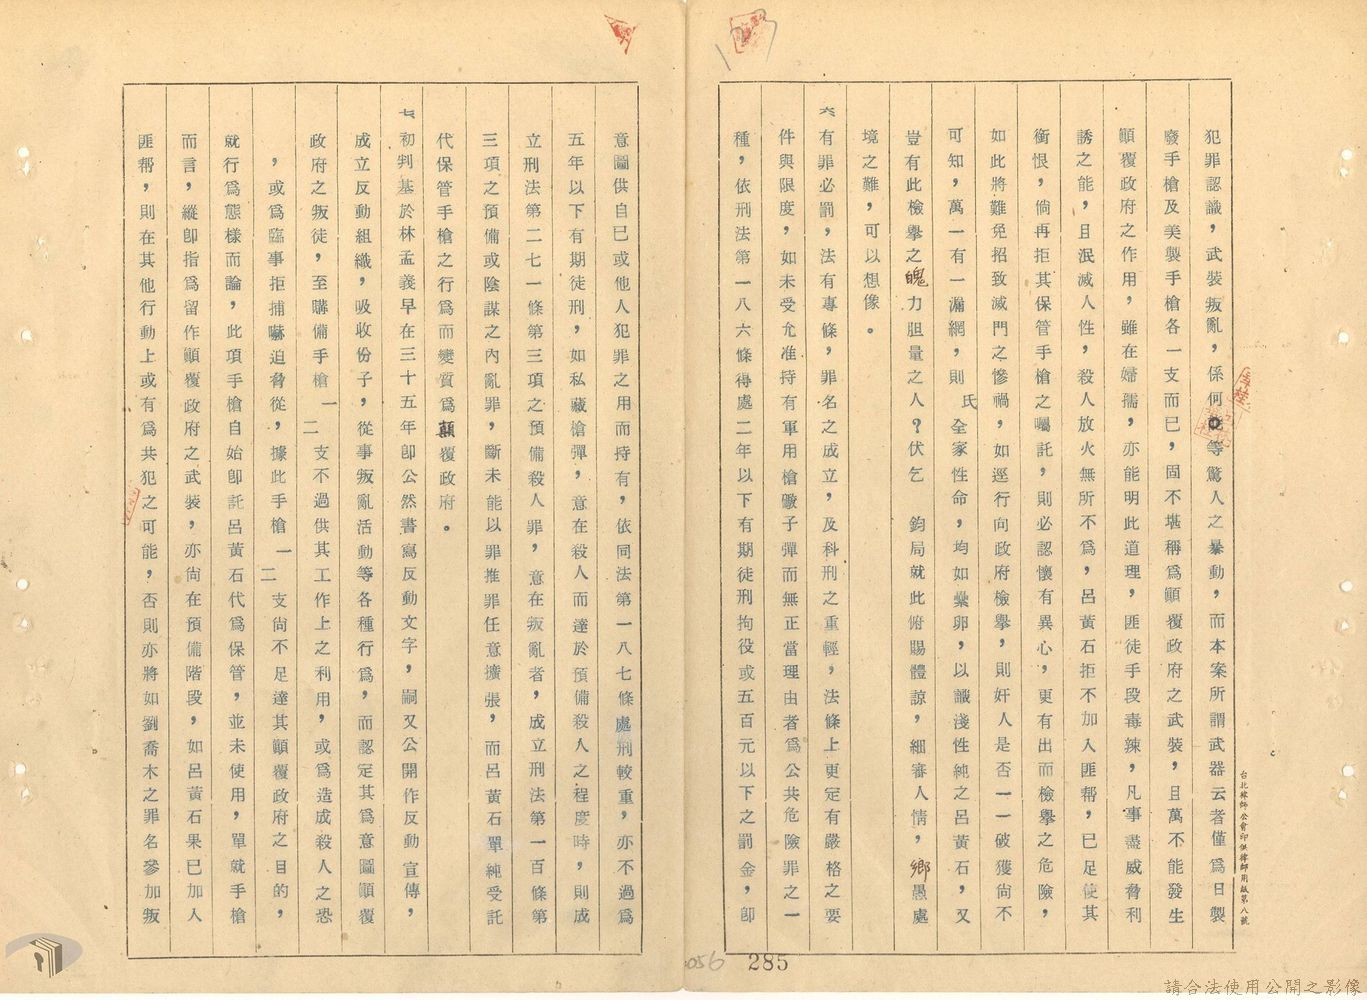 犯罪認識，武裝叛亂，係何等驚人之暴動，而本案所謂武器云者僅爲日製
廢手槍及美製手槍各一支而已，固不堪稱爲顚覆政府之武裝，且萬不能發生
顚覆政府之作用，雖在婦孺，亦能明此道理，匪徒手段毒辣，凡事盡威脅利
誘之能，且泯滅人性，殺人放火無所不爲，呂黃石拒不加入匪帮，已足使其
銜恨，倘再拒其保管手槍之囑託，則必認懷有異心，更有出而檢擧之危險，
如此將難免招致滅門之慘禍，如逕行向政府檢擧，則奸人是否一一破獲尙不
可知，萬一有一漏網，則氏全家性命，均如纍卵，以識淺性純之呂黃石，又
豈有此檢擧之魄力胆量之人？伏乞　鈞局就此俯賜體諒，細審人情，鄉愚處
境之難，可以想像。
六有罪必罰，法有專條，罪名之成立，及科刑之重輕，法條上更定有嚴格之要
件與限度，如未受允准持有軍用槍礮子彈而無正當理由者爲公共危險罪之一
種，依刑法第一八六條得處二年以下有期徒刑拘役或五百元以下之罰金，卽
意圖供自己或他人犯罪之用而持有，依同法第一八七條處刑較重，亦不過爲
五年以下有期徒刑，如私藏槍彈，意在殺人而達於預備殺人之程度時，則成
立刑法第二七一條第三項之預備殺人罪，意在叛亂者，成立刑法第一百條第
三項之預備或陰謀之內亂罪，斷未能以罪推罪任意擴張，而呂黃石單純受託
代保管手槍之行爲而變質爲顚覆政府。
七初判基於林孟義早在三十五年卽公然書寫反動文字，嗣又公開作反動宣傳，
成立反動組織，吸收份子，從事叛亂活動等各種行爲，而認定其爲意圖顚覆
政府之叛徒，至購備手槍一二支不過供其工作上之利用，或爲造成殺人之恐
，或爲臨事拒捕嚇迫脅從，據此手槍一二支尙不足達其顚覆政府之目的，
就行爲態樣而論，此項手槍自始卽託呂黃石代爲保管，並未使用，單就手槍
而言，縱卽指爲留作顚覆政府之武裝，亦尙在預備階段，如呂黃石果已加入
匪帮，則在其他行動上或有爲共犯之可能，否則亦將如劉喬木之罪名參加叛
台北律師公會印供律師用紙第八號
056
285
請合法使用公開之影像